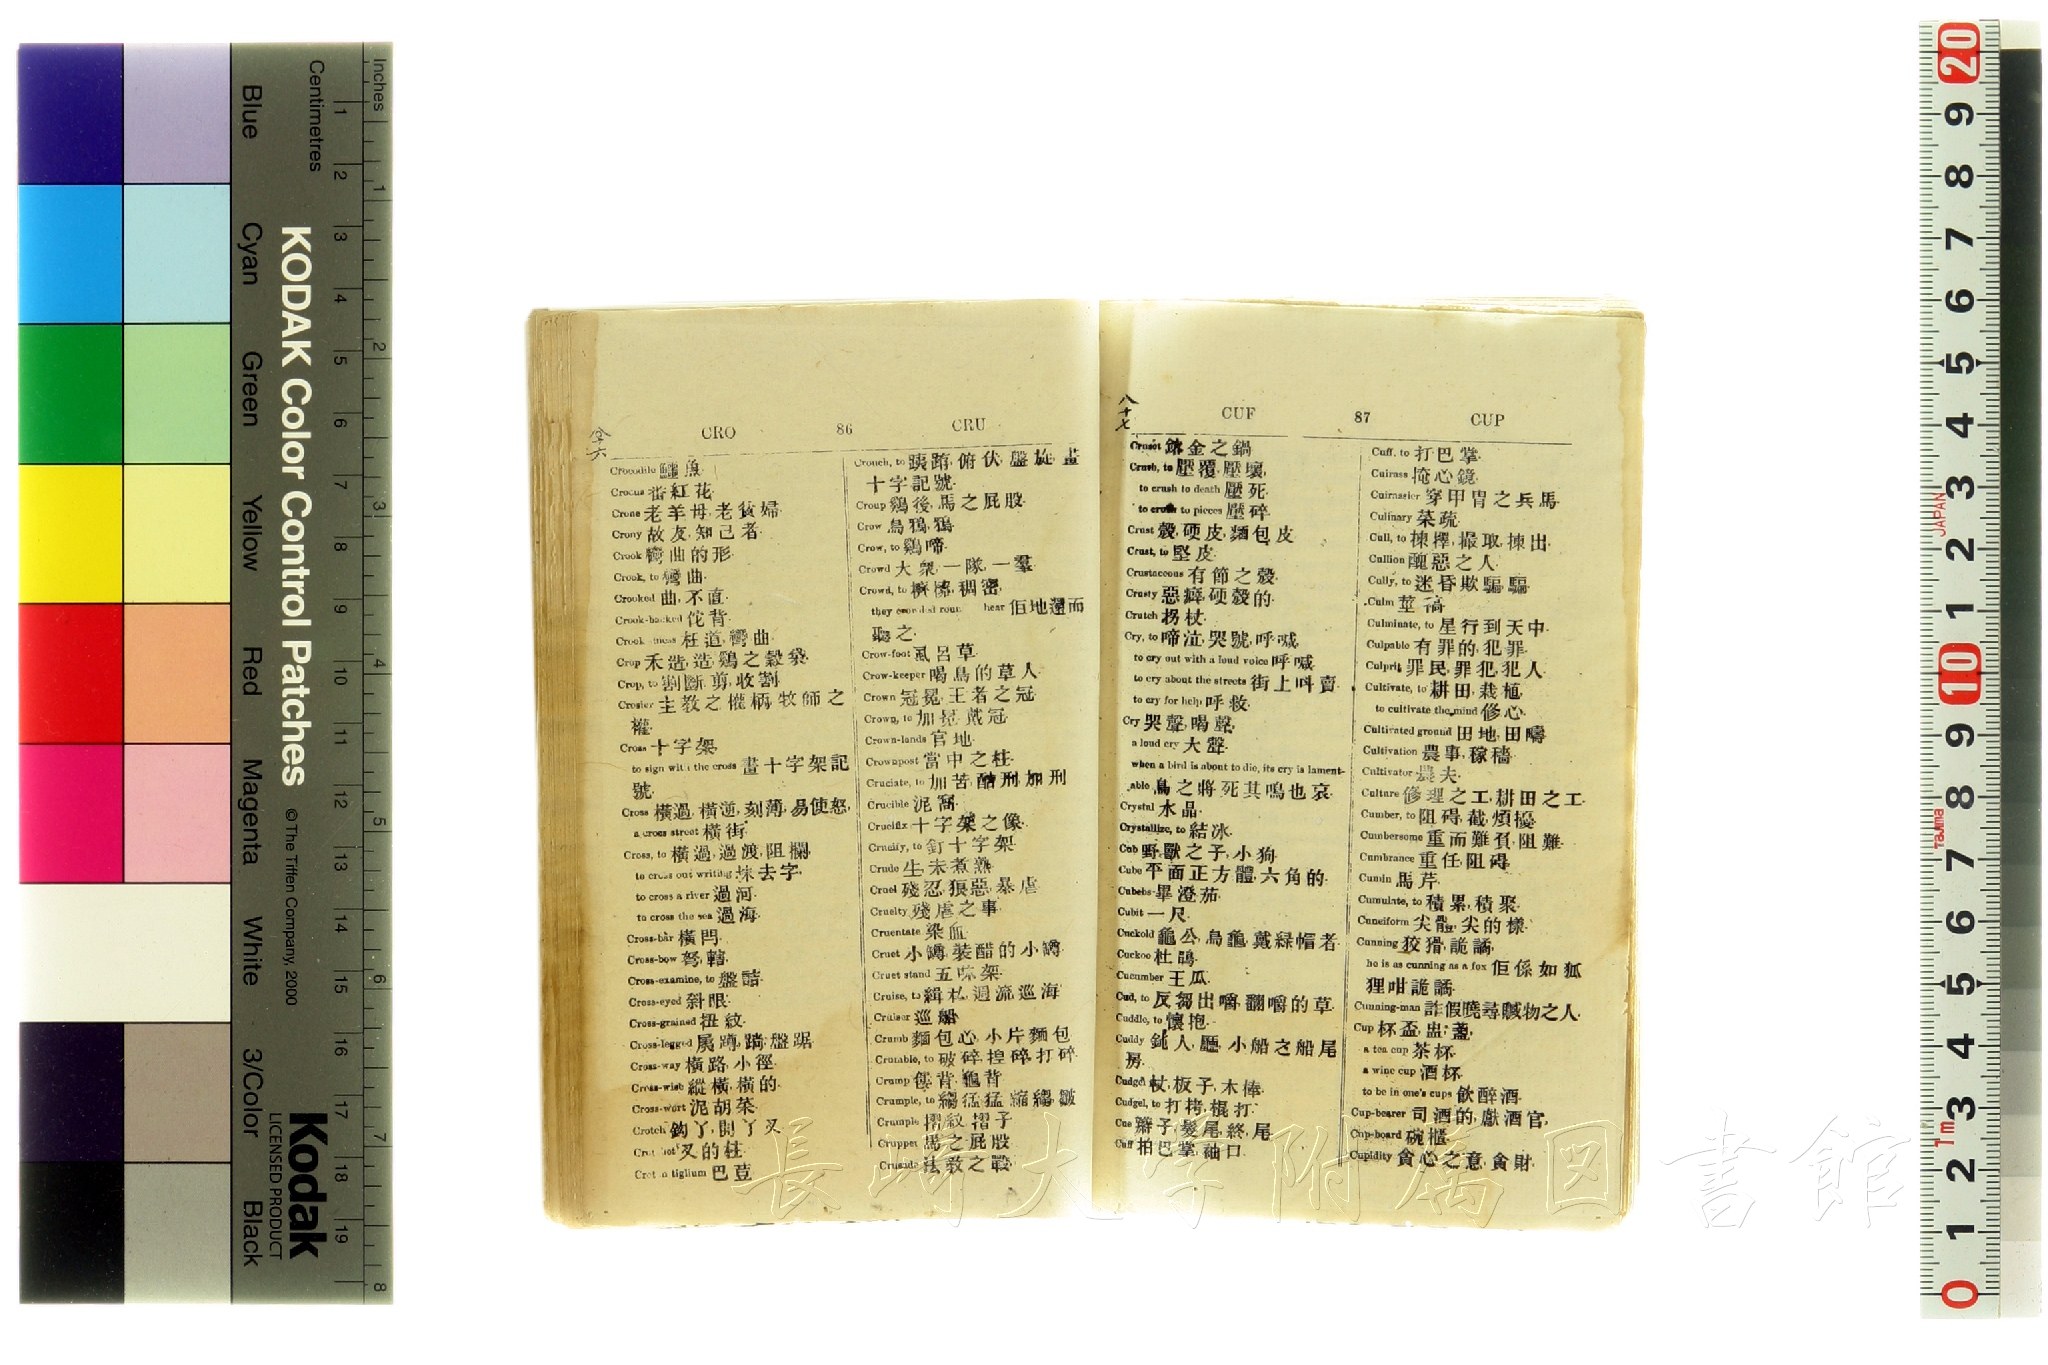 CRO 86 CRU
Crocodile 鱷魚
Crocus 番紅花
Crone 老羊母,老貧婦
Crony 故友,知己者
Crook 彎曲的形
Crook, to 彎曲
Crooked 曲,不直
Crook-backed 佗背
Crook 枉道,彎曲
Crop 禾造,造,鷄之穀袋
Crop, to 割斷,剪,收割
Crosier 主教之權柄,牧師之
權
Cross 十字架
to sign with the cross 畫十字架記
號
Cross 橫過,橫逆,刻薄,易使怒
a cross street 橫街
Cross, to 橫過,過渡,阻攔
to cross out writing 抹去字
to cross a river 過河
to cross the sea 過海
Cross-bar 橫閂
Cross-bow 弩,
Cross-examine, to 盤詰
Cross-eyed 斜眼
Cross-grained 扭紋
Cross-legged 盤踞
Cross-way 橫路,小徑
Cross-wise 縱橫,橫的
Cross-wort 泥胡菜
Crotch 鈎丫,開丫叉
叉的柱
tiglium 巴荳
Crouch, to 俯伏,盤旋,畫
十字記號
Croup 鷄後,馬之屁股
Crow 烏鴉,鴉
Crow, to 鷄啼
Crowd 大衆,一隊,一羣
Crowd, to 稠密
they crowded round hear 佢地還而
聽之
Crow-foot 呂草
Crow-keeper 喝鳥的草人
Crown 冠冕,王者之冠
Crown, to 加冕,戴冠
Crown-lands 官地
Crownpost 當中之柱
Cruciate, to 加苦,酷刑加刑
Crucible 泥窩
Crucifix 十字架之像
Crucify, to 釘十字架
Crude 生,未煮熟
Cruel 殘忍,狠惡,暴虐
Cruelty 殘虐之事
Cruentate 染血
Cruet 小罇,裝醋的小罇
Cruet stand 五味架
Cruise, to 緝私,週流巡海
Cruiser 巡船
Crumb 麵包心,小片麵包
Crumble, to 破碎,揑碎,打碎
Crump 背,龜背
Crumple, to 縐,皺
Crumple 摺紋,摺子
Crupper 馬之屁股
Crusade 法教之戰
八十七
CUF 87 CUP
Cruset 鎔金之鍋
Crush, to 壓覆,壓壞
to crush to death 壓死
to crush to pieces 壓碎
Crust 殼,硬皮,麵包皮
Crust, to 堅皮
Crustaceous 有節之殼
Crusty 惡癖,硬殼的
Crutch 拐杖
Cry, to 啼泣,哭號,呼喊
to cry out with a loud voice 呼喊
to cry about the streets 街上呌賣
to cry for help 呼救
Cry 哭聲,喝聲
a loud cry 大聲
when a bird is about to die, its cry is lament-
able 鳥之將死其鳴也哀
Crystal 水晶
Crystallize, to 結冰
Cub 野獸之子,小狗
Cube 平面正方體,六角的
Cubebs 畢澄茄
Cubit 一尺
Cuckold 龜公,烏龜,戴緑帽者
Cuckoo 杜鵑
Cucumber 王瓜
Cud, to 反芻出嚼,翻嚼的草
Cuddle, to 懷抱
Cuddy 鈍人,廳,小船之船尾
房
Cudgel 杖,板子,木俸
Cudgel, to 打拷,棍打
Cue 辮子,髮尾,終,尾
Cuff 拍巴掌,袖口
Cuff, to 打巴掌
Cuirass 掩心鏡
Cuirassier 穿甲胄之兵馬
Culinary 菜疏
Cull, to 揀擇,撮取,揀出
Cullion 醜惡之人
Cully, to 迷昏欺騙,騙
Culm 莖稿
Culminate, to 星行到天中
Culpable 有罪的,犯罪
Culprit 罪民,罪犯,犯人
Cultivate, to 耕田,栽植
to cultivate the mind 修心
Cultivated ground 田地,田疇
Cultivation 農事,稼穡
Cultivator 農夫
Culture 修理之工,耕田之工
Cumber, to 阻碍,截,煩擾
Cumbersome 重而難負,阻難
Cumbrance 重任,阻碍
Cumin 馬芹
Cumulate, to 積累,積聚
Cuneiform 尖體,尖的樣
Cunning 狡猾,詭譎
he is as cunning as a fox 佢係如狐
狸咁詭譎
Cunning-man 詐假曉尋贓物之人
Cup 杯,盃,盅,盞
a tea cup 茶杯
a wine cup 酒杯
to be in one's cups 飲醉酒
Cup-bearer 司酒的,獻酒官
Cup-board 碗櫃
Cupidity 貪心之意,貪財
長崎大学附属図書館
Inches
Centimetres
KODAK Color Control Patches
© The Tiffen Company, 2000
Kodak
LICENSED PRODUCT
Blue Cyan Green Yellow Red Magenta White 3/Color Black
1 2 3 4 5 6 7 8 9 10 11 12 13 14 15 16 17 18 19
1 2 3 4 5 6 7 8
20 9 8 7 6 5 4 3 2 1 10 9 8 7 6 5 4 3 2 1 0
JAPAN
Tajima
1m